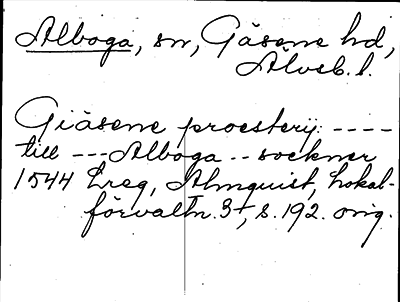 Alboga, sn, Gäsene hd,
Älvsb. l.
Giäsene proesterij: ----
till --- Alboga -- sockner
1544 Lreg, Almquist, Lokal-
förvaltn. 3:1, s. 192. orig.